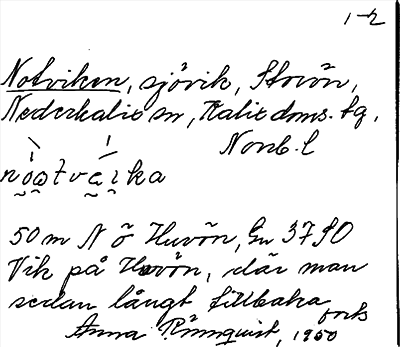 1-2
Notviken, sjövik, Storön,
Nederkalix sn, Kalix doms. tg,
Norrb. l
50 m N ö Huvön, Gu 3790
Vik på Huvön, där man
sedan långt tillbaka
Anna Rönnquist, 1950